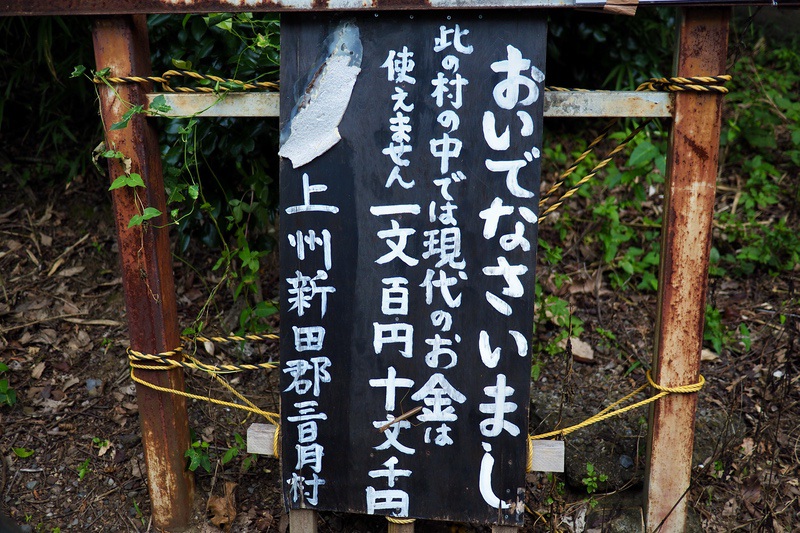 おいでなさいまし
此の村の中では現代のお金は
使えません
一文百円 十文千円
上州新田郡三日月村